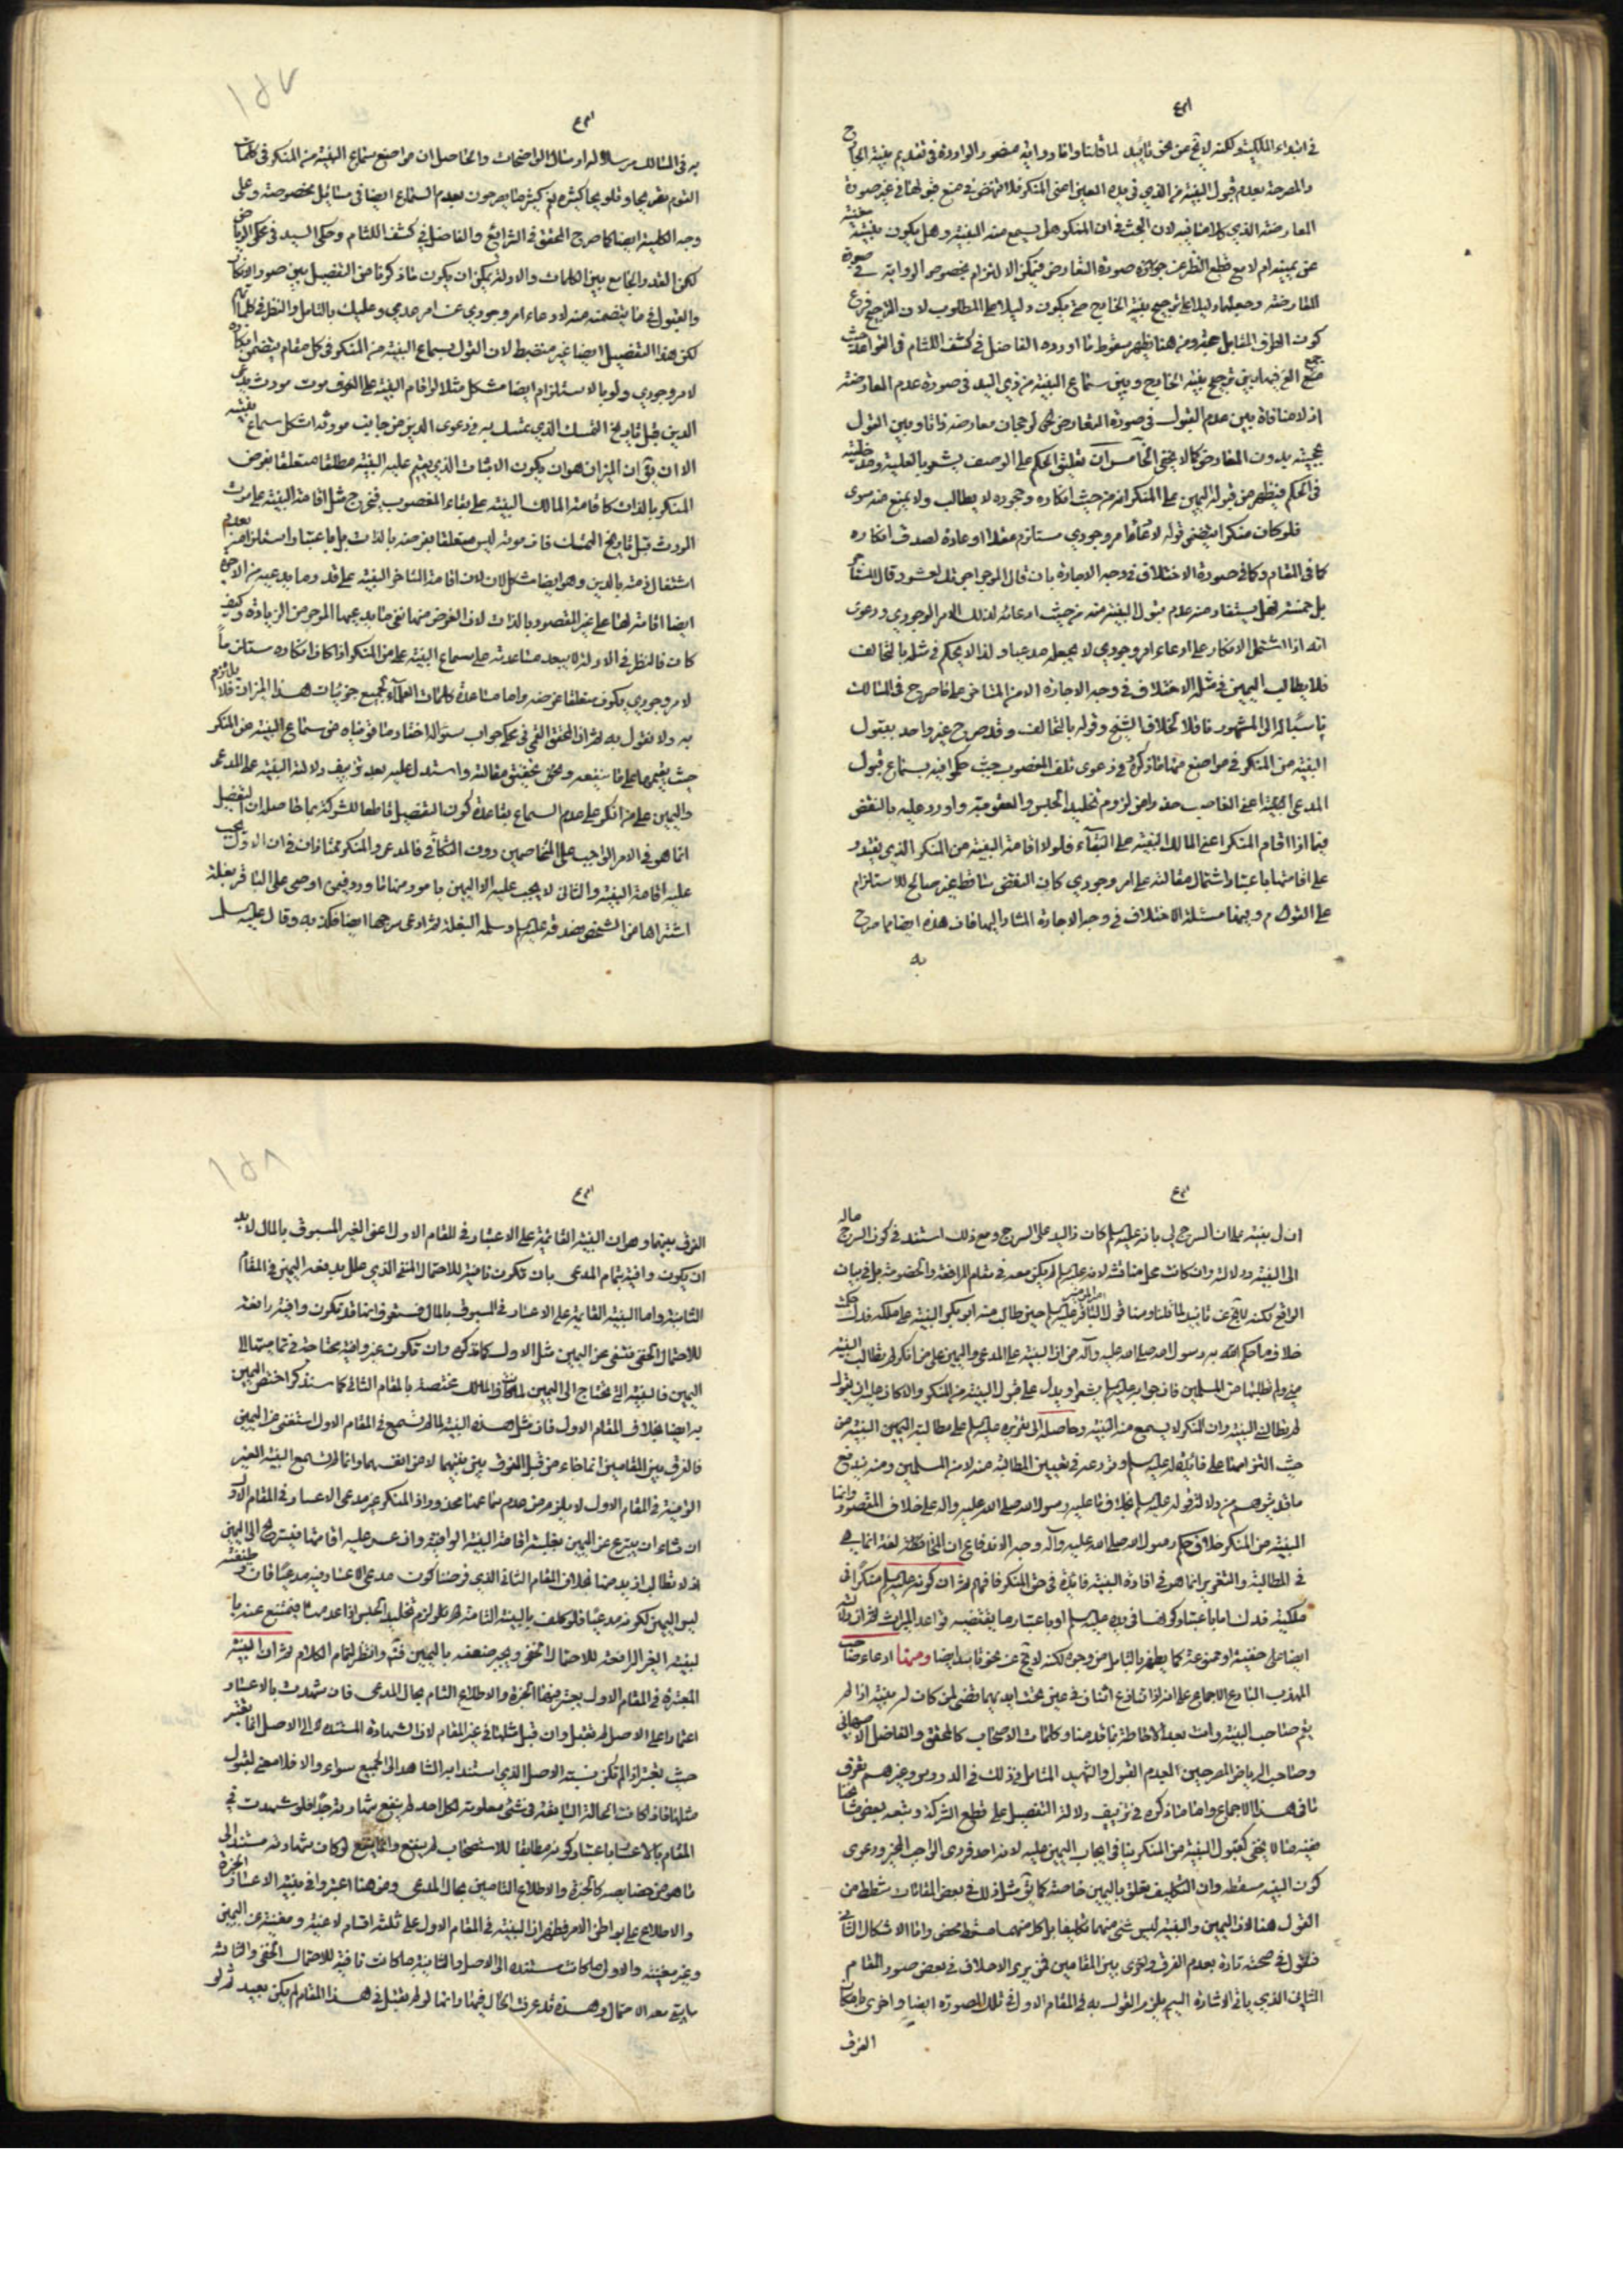 في ابتداء الملكية ولكنه لا يخ من نحو تأييد لما قلنا واما رواية منصور الواردة في تقديم بينة الخارج
والمصرحة بعدم قبول البينة من الذي في يده العين اعني المنكر فلا تنهض في منع قبولها في غير صورة
المعارضة الذي كلامنا فيه لان البحث في ان المنكر هل يسمع منه البينة وهل يكون بينته مغنية
عن يمينه ام لا مع قطع النظر عن صورة التعارض فيمكن الالتزام بخصوص الرواية في صورة
المعارضة وجعلها دليلا على ترجيح بينة الخارج حتى يكون دليلا على المطلوب لان الترجيح فرع
كون الطرف المقابل حجة ومن هنا يظهر سقوط ما اورده الفاضل في كشف اللثام في القواعد حيث
بين ترجيح بينة الخارج وبين سماع البينة من ذي اليد في صورة عدم المعارضة
اذ لا منافاة بين عدم القبول في صورة التعارض لرجحان معارضه ذاتا وبين القول
بحجيته بدون المعارض كما لا يخفى الخامس ان تعليق الحكم على الوصف يشعر بالعلية
في الحكم فيظهر من قوله اليمين على المنكر انه من حيث انكاره وجحوده لا يطالب ولا يمنع منه سوى
فلو كان منكرا يقتضي قوله لا عاما امر وجودي مستلزم عقلا او عادة لصدق انكاره
كما في المقام وكما في صورة الاختلاف في وجه الاجارة بان قال الموجر اجرتك بعشرة وقال المستأجر
بل بخمسة فهل يستفاد منه عدم قبول البينة منه من حيث ادعائه لذلك الامر الوجودي ودعوى
انه اذا اشتمل الانكار على ادعاء امر وجودي لا يجعله مدعيا ولذا لا يحكم في مثله بالتحالف
فلا يطالب اليمين في مثله الاختلاف في وجه الاجارة الا من المستأجر على ما صرح في المسالك
ناسبا له الى المشهور ناقلا لخلاف الشيخ وقوله بالتحالف وقد صرح غير واحد بقبول
البينة من المنكر في مواضع منها ما ذكروه في دعوى تلف المغصوب حيث حكموا فيه بسماع قبول
المدعى عليه اعني الغاصب حذرا من لزوم تخليد الحبس والعقوبة واورد عليه بالنقض
فيما اذا اقام المنكر اعني المالك البينة على البقاء فلولا اقامة البينة من المنكر الذي يقتدر
على اقامتها باعتبار اشتمال مقالته على امر وجودي كان النقض ساقطا غير صالح للاستلزام
على القول م ومنها مسئلة الاختلاف في وجه الاجارة المشار اليها فان هذه ايضا مما صرح
به
١٥٧
به في المسالك مرسلا له ارسال الواضحات والحاصل ان مواضع سماع البينة من المنكر في كلمات
القوم تصريحا وتلويحا كثيرة نعم كثيرا ما يصرحون بعدم السماع ايضا في مسائل مخصوصة وعلى
وجه الكلية ايضا كما صرح المحقق في الشرائع والفاضل في كشف اللثام وحكى السيد في محكي الرياض
لكن القدر الجامع بين الكلمات والادلة يمكن ان يكون ما ذكرنا من التفصيل بين صور الانكار
والقبول في ما يتضمنه منه لادعاء امر وجودي عن امر عدمي وعليك بالتأمل والنظر في كلماتهم
لكن هذا التفصيل ايضا غير منضبط لان القول بسماع البينة من المنكر في كل مقام يتضمن انكاره
لامر وجودي ولو بالاستلزام ايضا مشكل مثلا لو اقام البينة على موت مورث مدعي
الدين قبل تاريخ التمسك الذي تمسك به في دعوى الدين من جانب مورثه اشكل سماع بينته
الا ان يق ان الميزان هو ان يكون الاثبات الذي يقيم عليه البينة مطلقا متعلقا بغرض
المنكر بالذات كاقامة المالك البينة على بقاء المغصوب فيخرج مثل اقامة البينة على موت
المورث قبل تاريخ التمسك فان موته ليس متعلقا بغرضه بالذات بل باعتبار استلزامه لعدم
اشتغال ذمته بالدين وهو ايضا مشكل لان اقامة المستأجر البينة على قدر وما يدعيه من الاجرة
ايضا اقامة لها على غير المقصود بالذات لان الغرض منها نفي ما يدعيه الموجر من الزيادة وكيف
كان فالنظر في الادلة لا يبعد مساعدته على سماع البينة على من المنكر اذا كان انكاره مستلزما
لامر وجودي يكون متعلقا بغرضه واما مساعدة كلمات العلماء لجميع جزئيات هذا الميزان فلا يلتزم
به ولا نقول به ثم ان المحقق القمي في محكي جواب سؤاله اختار ما قويناه من سماع البينة من المنكر
حيث يقيمها على ما ينفعه وحقق تحقيق مقالته واستدل عليه بعد تزييف دلالة البينة على المدعي
واليمين على من انكر على عدم السماع بقاعدة كون التفصيل قاطعا للشركة بما حاصله ان التفصيل
انما هو في الامر الواجب على المتخاصمين دون المكافي فالمدعي والمنكر متساويان في ان الاول يجب
عليه اقامة البينة والثاني لا يجب عليه الا اليمين بامور منها ما ورد فيمن ادعى على الباقر بغلة
اشتراها من الشخص فصدقه عليه السلم وسلمه البغلة ثم ادعى سرجها ايضا فكذبه وقال عليه السلم
ان لي بينة على ان السرج لي بانه عليه السلم كان ذا اليد على السرج ومع ذلك استند في كون السرج ماله
الى البينة ودلالته وان كانت محل مناقشة لانه عليه السلم لم يكن معه في مقام المرافعة والخصومة بل في بيان
الواقع لكنه لا يخ عن تأييد لما قلنا ومنها قول الباقر عليه السلم حين طالب منه ابو بكر البينة على ملكه فدك
خلاف ما حكم الله به ورسوله صلى الله عليه وآله من ان البينة على المدعي واليمين على من انكر لم تطالب البينة
مني ولم تطلبها من المسلمين فان جوابه عليه السلم يشعر او يدل على قبول البينة من المنكر والا كان عليه ان يقول
لم تطالبني البينة وان المنكر لا يسمع منه البينة وحاصله الى تقريره عليه السلم على مطالبة اليمين البينة من
حيث التزامها على قابليته له عليه السلم وتردعه في تعيين المطالبة منه لا من المسلمين ومنه يندفع
ما قد يتوهم من دلالة قوله عليه السلم بخلاف ما عليه رسول الله صلى الله عليه وآله على خلاف المقصود وانما
البينة من المنكر خلاف حكم رسول الله صلى الله عليه وآله وجه الاندفاع ان المخالفة لغة انما هي
في المطالبة والتقرير انما هو في افادة البينة فائدة في حق المنكر فافهم ثم ان كونه عليه السلم منكرا في
ملكية فدك اما باعتبار كونها في يده عليه السلم او باعتبار ما يقتضيه قواعد الميراث
ايضا على حقيته او ممنوعة كما يظهر بالتأمل من وجوه لكنه لا يخ عن نحو تأييد ايضا ومنها ادعاء صاحب
المهذب البارع الاجماع على انه اذا تنازع اثنان في عين تحت ايديهما قضي لمن كان له بينة اذا لم
يقم صاحب البينة وانت بعد الاحاطة بما قدمنا وكلمات الاصحاب كالمحقق والفاضل الاصبهاني
وصاحب الرياض المصرحين بعدم القبول والشهيد المتأمل في ذلك في الدروس وغيرهم تعرف
ما في هذا الاجماع واما ما ذكره في تزييف دلالة التفصيل على قطع الشركة وتبعه بعض مشايخنا
ففيه ما لا يخفى كقبول البينة من المنكر ينافي ايجاب اليمين عليه لانه احد فردي الواجب المخير ودعوى
كون البينة مسقطة وان التكليف تعلق باليمين خاصة كما يق مثل ذلك في بعض المقامات شطط من
القول هنا لان اليمين والبينة ليس شئ منهما تكليفا بل كل منهما مسقط محض واما الاشكال الثاني
فنقول في صحته تارة بعدم الفرق واخرى بين المقامين فمن يرى الاحلاف في بعض صور المقام
الثاني الذي يأتي الاشارة اليه يلزم القول به في المقام الاول في تلك الصورة ايضا واخرى بامكان
الفرق
١٥٨
الفرق بينهما وهو ان البينة القائمة على الاعسار في المقام الاول اعني الغير المسبوق بالمال لا بد
ان يكون وافية بتمام المدعى بان تكون نافية للاحتمال الخفي الذي علل به دفعه اليمين في المقام
الثانية واما البينة القائمة على الاعسار في المسبوق بالمال فستعرف انها قد تكون وافية رافعة
للاحتمال الخفي فتغني عن اليمين مثل الاول كما تذكره وان تكون غير وافية محتاجة في تماميتها الى
اليمين فالبينة التي تحتاج الى اليمين مختصة بالمقام الثاني كما سنذكر اختص اليمين
به ايضا بخلاف المقام الاول فان مثل هذه البينة لما لم تسمع في المقام الاول استغنى عن اليمين
فالفرق بين المقامين انما جاء من قبل الفرق بين بينتيهما لا من انفسهما وانما لم تسمع البينة الغير
الوافية في المقام الاول لا يلزم من عدم سماعها محذور اذ المنكر غير مدعي الاعسار في المقام الاول
ان شاء ان يتبرع عن اليمين فعليه اقامة البينة الوافية وان عسر عليه اقامتها فيستريح الى اليمين
اذ لا نطالب ازيد منها بخلاف المقام الثاني الذي فرضنا كون مدعي الاعسار فيه مدعيا فان وظيفته
ليس اليمين لكونه مدعيا فلو كلف بالبينة التامة لزم تخليد الحبس اذا عدمها فيقنع عنه بما
لبينة الغير الرافعة للاحتمال الخفي ويجبر ضعفه باليمين فتأمل وانتظر لتمام الكلام ثم ان البينة
المعتبرة في المقام الاول يعتبر فيها الخبرة والاطلاع التام بحال المدعي فان شهدت بالاعسار
اعتمادا على الاصل لم تقبل وان قبل مثلها في غير المقام لان الشهادة المستندة الى الاصل انما تعتبر
حيث يعتبر اذا لم تكن نسبة الاصل الذي استند اليه الشاهد الى الجميع سواء والا فلا معنى لقبول
مثلها فاذا كانت الحالة السابقة في شئ معلومة لكل احد لم ينفع شهادة احد فلو شهدت في
المقام بالاعسار باعتبار كونه مطابقا للاستصحاب لم ينفع وانما ينفع لو كان شهادته مستندا الى
ما هو من خصايصه كالخبرة والاطلاع التامين بحال المدعي ومن هنا اعتبروا في بينة الاعسار الخبرة
والاطلاع على بواطن الامر فظهر ان البينة في المقام الاول على ثلثة اقسام لاغية ومغنية عن اليمين
وغير مغنية والاول ما كانت مستندة الى الاصل والثانية ما كانت نافية للاحتمال الخفي والثالثة
ما يبقى معه الاحتمال وهذه قد عرفت الحال فيها وانها لو لم تقبل في هذا المقام لم يكن بعيدا ثم لو